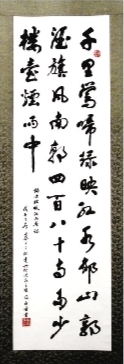 千里鶯啼綠映紅水邨山郭
酒旗風南朝四百八十寺多少
樓臺煙雨中